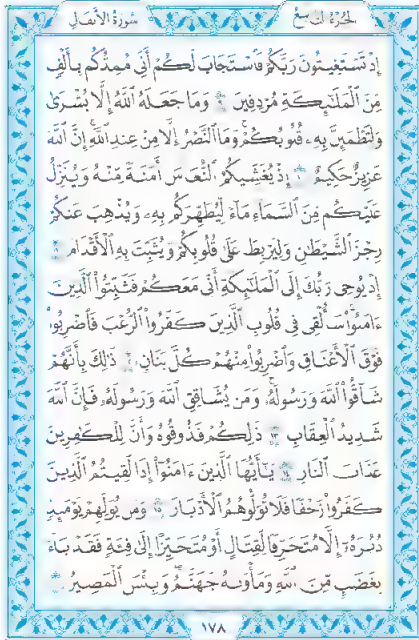 سورة الأنفال
الجزء التاسع
إِذْ تَسْتَغِيثُونَ رَبَّكُمْ فَاسْتَجَابَ لَكُمْ أَنِّي مُمِدُّكُم بِأَلْفٍ
مِّنَ الْمَلَٰٓئِكَةِ مُرْدِفِينَ ٩ وَمَا جَعَلَهُ اللَّهُ إِلَّا بُشْرَىٰ
وَلِتَطْمَئِنَّ بِهِۦ قُلُوبُكُمْ وَمَا النَّصْرُ إِلَّا مِنْ عِندِ اللَّهِ إِنَّ اللَّهَ
عَزِيزٌ حَكِيمٌ ١٠ إِذْ يُغَشِّيكُمُ النُّعَاسَ أَمَنَةً مِّنْهُ وَيُنَزِّلُ
عَلَيْكُم مِّنَ السَّمَآءِ مَآءً لِّيُطَهِّرَكُم بِهِۦ وَيُذْهِبَ عَنكُمْ
رِجْزَ الشَّيْطَٰنِ وَلِيَرْبِطَ عَلَىٰ قُلُوبِكُمْ وَيُثَبِّتَ بِهِ الْأَقْدَامَ ١١
إِذْ يُوحِي رَبُّكَ إِلَى الْمَلَٰٓئِكَةِ أَنِّي مَعَكُمْ فَثَبِّتُوا الَّذِينَ
ءَامَنُوا سَأُلْقِي فِي قُلُوبِ الَّذِينَ كَفَرُوا الرُّعْبَ فَاضْرِبُوا
فَوْقَ الْأَعْنَاقِ وَاضْرِبُوا مِنْهُمْ كُلَّ بَنَانٍ ١٢ ذَٰلِكَ بِأَنَّهُمْ
شَآقُّوا اللَّهَ وَرَسُولَهُۥ وَمَن يُشَاقِقِ اللَّهَ وَرَسُولَهُۥ فَإِنَّ اللَّهَ
شَدِيدُ الْعِقَابِ ١٣ ذَٰلِكُمْ فَذُوقُوهُ وَأَنَّ لِلْكَٰفِرِينَ
عَذَابَ النَّارِ ١٤ يَٰٓأَيُّهَا الَّذِينَ ءَامَنُوٓا إِذَا لَقِيتُمُ الَّذِينَ
كَفَرُوا زَحْفًا فَلَا تُوَلُّوهُمُ الْأَدْبَارَ ١٥ وَمَن يُوَلِّهِمْ يَوْمَئِذٍ
دُبُرَهُۥٓ إِلَّا مُتَحَرِّفًا لِّقِتَالٍ أَوْ مُتَحَيِّزًا إِلَىٰ فِئَةٍ فَقَدْ بَآءَ
بِغَضَبٍ مِّنَ اللَّهِ وَمَأْوَىٰهُ جَهَنَّمُ وَبِئْسَ الْمَصِيرُ ١٦
١٧٨